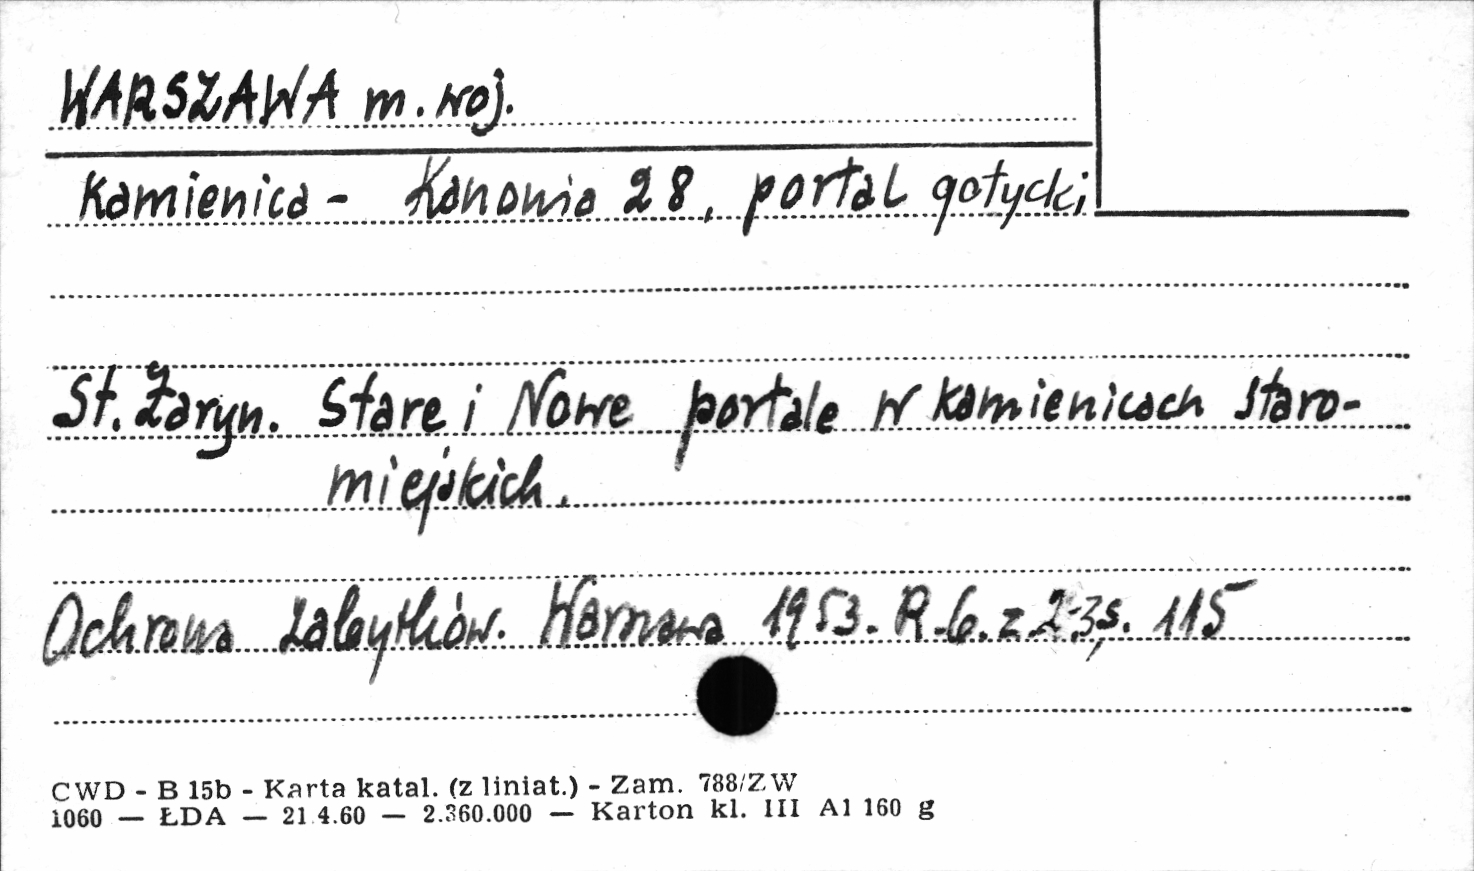 WARSZAWA m. woj.
Kamienica - Kanonia 28, portal gotycki
St. Żaryn. Stare i Nowe portale w kamienicach staro-
miejskich.
Ochrona Zabytków. Warszawa 1953. R. 6. z. 2-3, s. 115
CWD - B 15b - Karta katal. (z liniat.) - Zam. 788/ZW
1060 — ŁDA — 21.4.60 — 2.360.000 — Karton kl. III A1 160 g